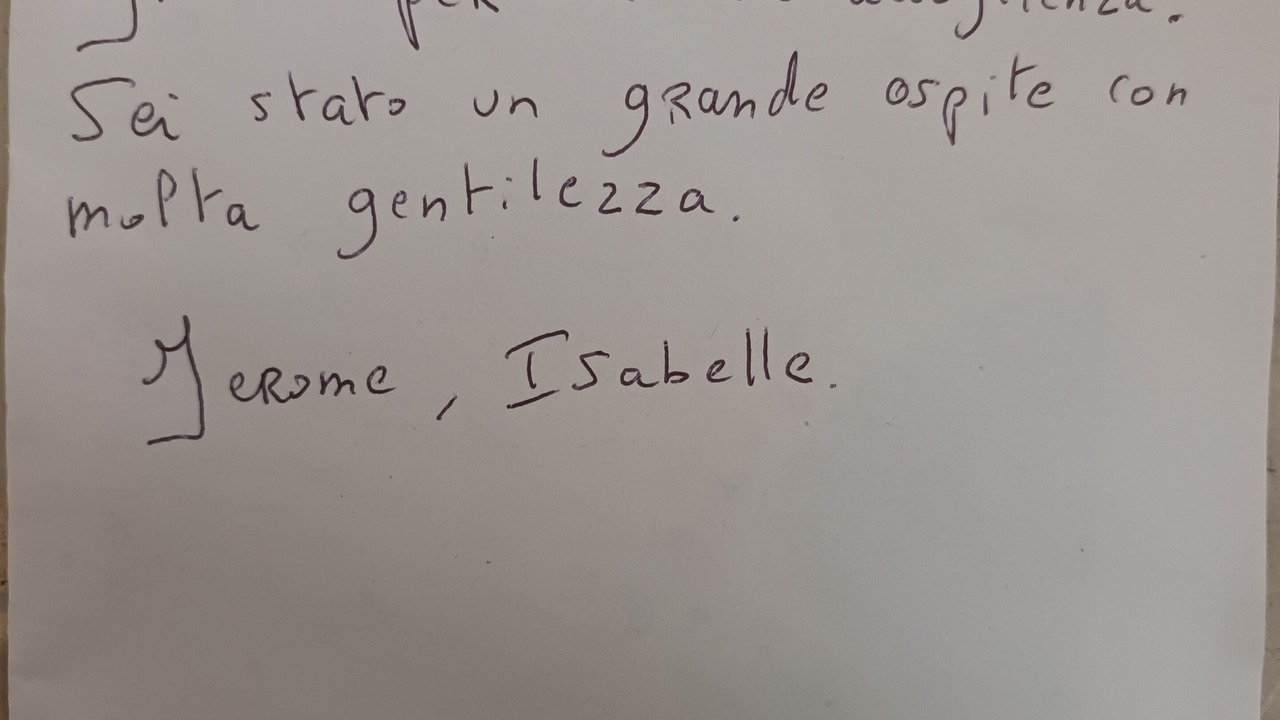 per
Sei stato un grande ospite con
molta gentilezza.
Jerome, Isabelle.